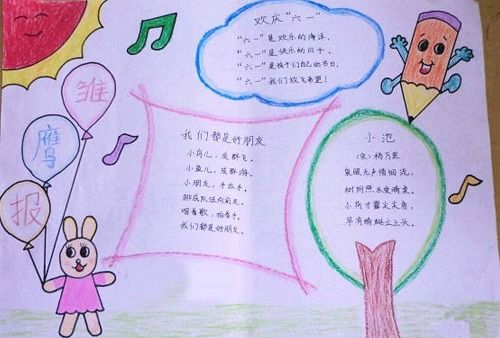 雏
鹰
报
欢庆“六一”
“六一”是欢乐的海洋,
“六一”是快乐的日子,
“六一”是孩子们自己的节日,
“六一”我们放飞希望!
我们都是好朋友
小鸟儿,成群飞,
小鱼儿,成群游,
小朋友,手拉手,
排成队伍向前走。
唱着歌,拍着手,
我们都是好朋友。
小池
(宋)杨万里
泉眼无声惜细流,
树阴照水爱晴柔。
小荷才露尖尖角,
早有蜻蜓立上头。